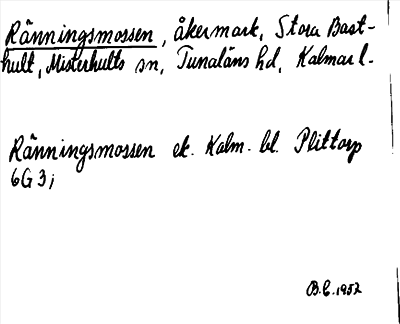 Ränningsmossen, åkermark, Stora Bast-
hult, Misterhults sn, Tunaläns hd, Kalmar l.
Ränningsmossen ek. Kalm. bl. Plittorp
6G3j
B.E. 1952